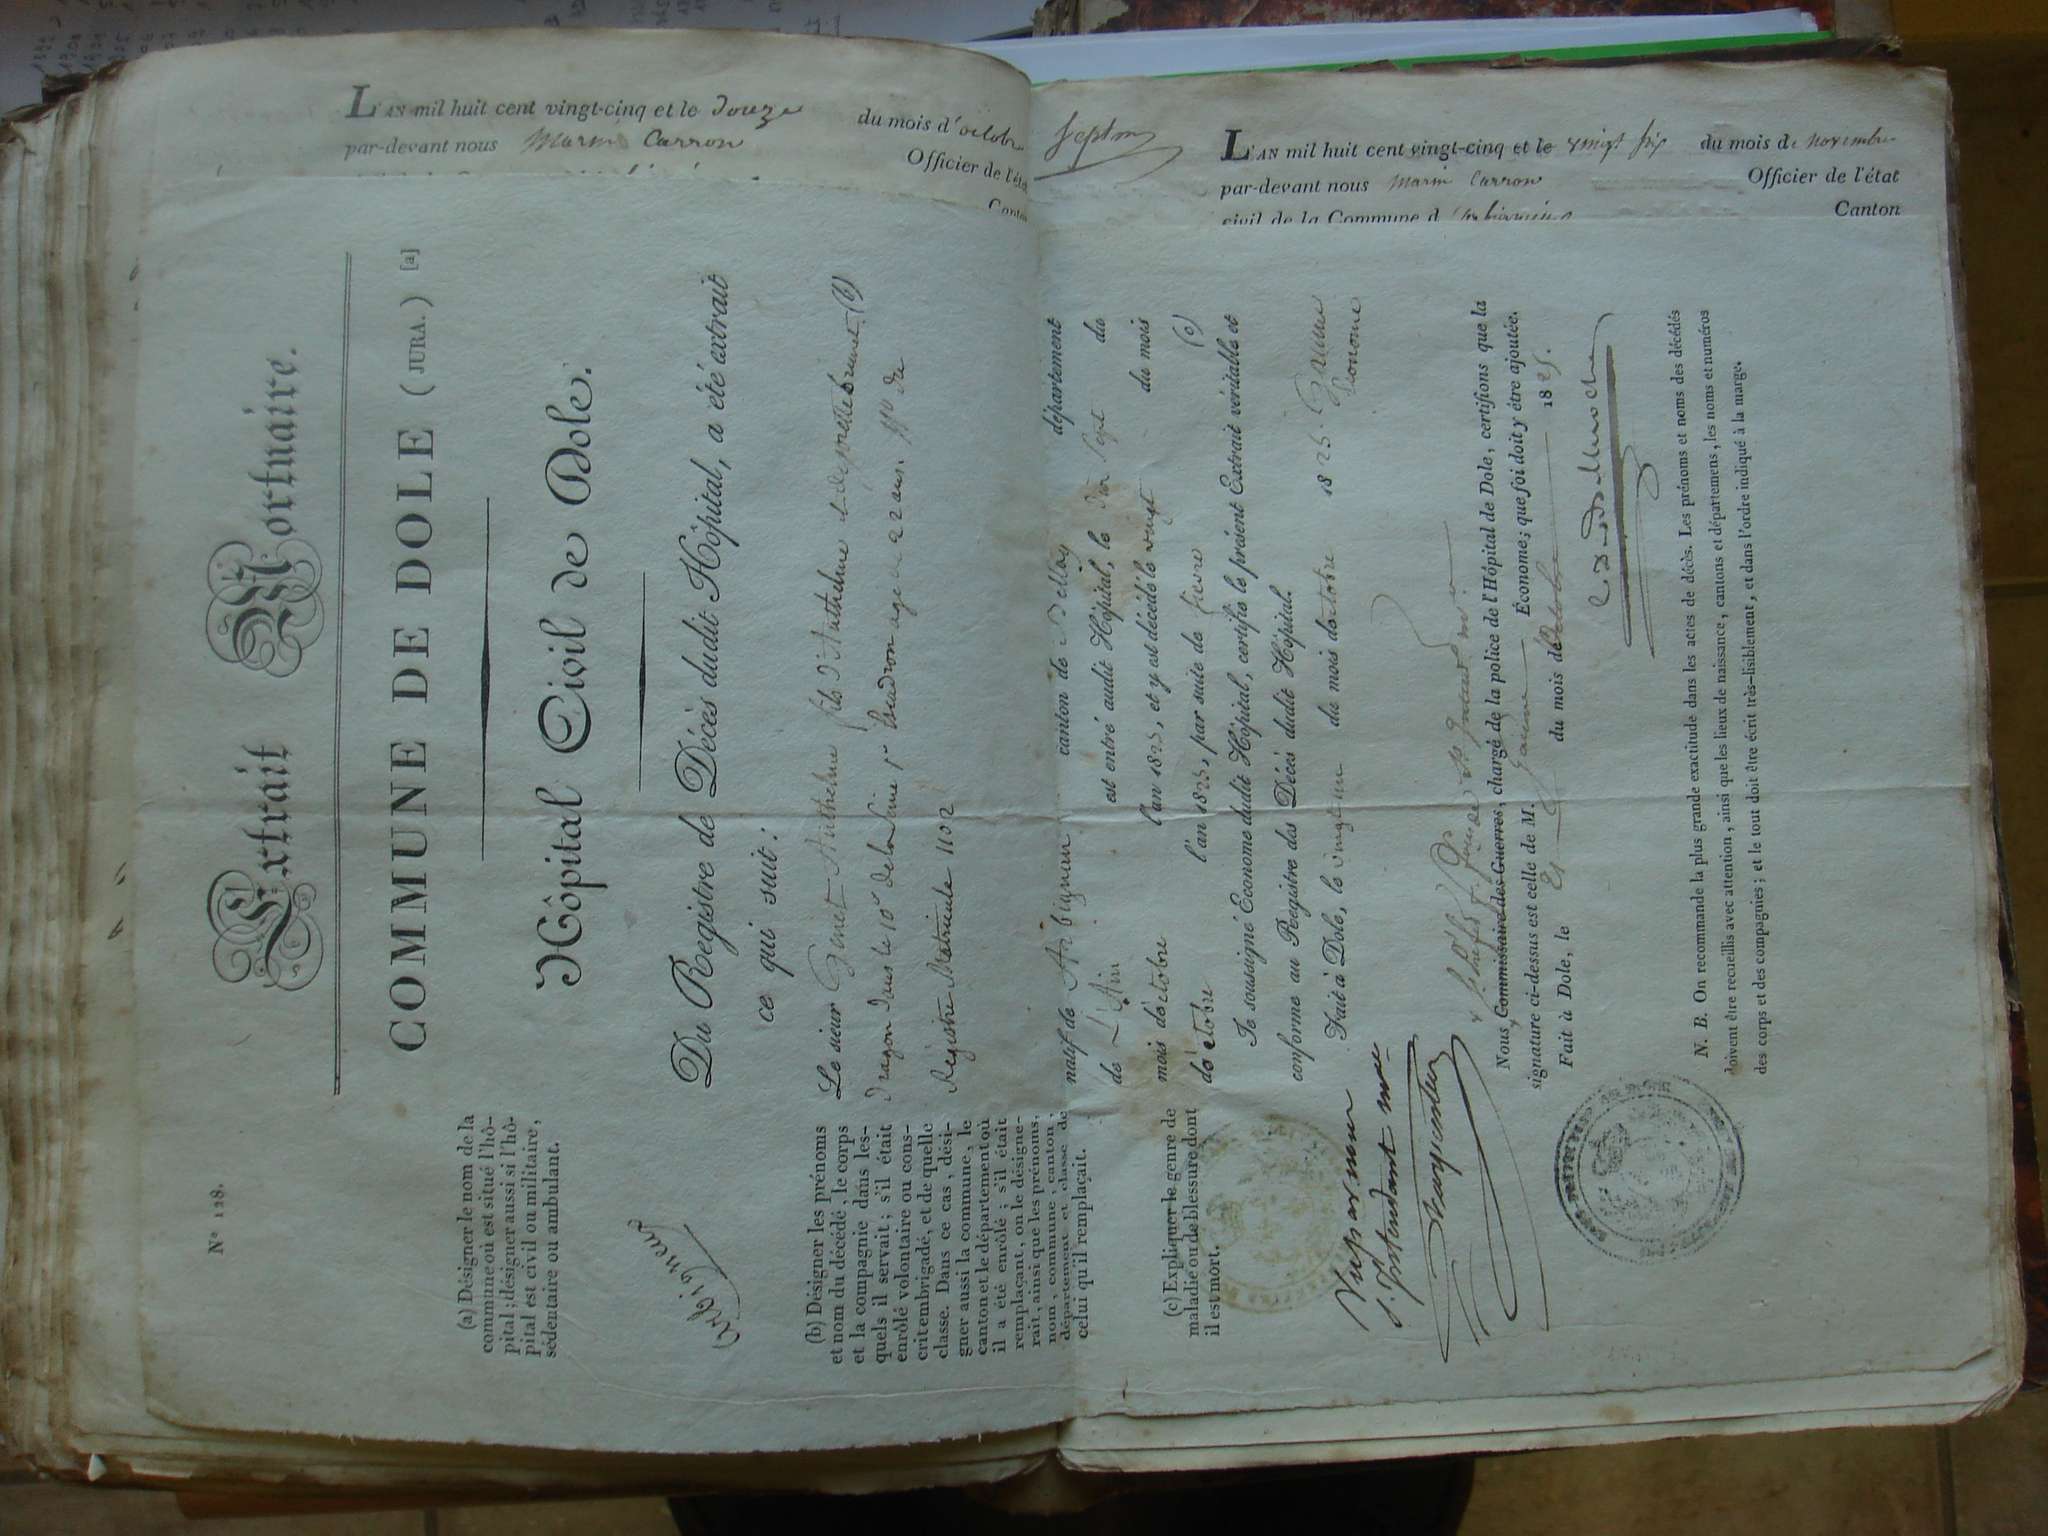 L'AN mil huit cent vingt-cinq et le douze du mois d'octobre
par-devant nous Marin Carron Officier de l'état
Canton
L'AN mil huit cent vingt-cinq et le vingt six du mois de novembre
par-devant nous Marin Carron Officier de l'état
civil de la Commune d Canton
Nº 128.
Extrait Mortuaire.
COMMUNE DE DOLE (JURA.) [a]
Hôpital Civil de Dole.
Du Registre de Décès dudit Hôpital, a été extrait
ce qui suit :
Le sieur Genet Anthelme fils d'Anthelme (b)
Dragon dans le 10e de la agé de 22 ans. du
Registre Matricule 1102
natif de Arbignieu canton de Belley département
de L'Ain est entré audit Hôpital, le dix Sept du
mois d'octobre l'an 1825, et y est décédé le vingt du mois
d'octobre l'an 1825, par suite de fievre (c)
Je soussigné Econome dudit Hôpital, certifie le présent Extrait véritable et
conforme au Registre des Décès dudit Hôpital.
Fait à Dole, le vingt un du mois d'octobre 1825.
Econome
Nous Commissaire des Guerres, chargé de la police de l'Hôpital de Dole, certifions que la
signature ci-dessus est celle de M. Économe; que foi doit y être ajoutée.
Fait à Dole, le 21 du mois d'octobre 1825.
N. B. On recommande la plus grande exactitude dans les actes de décès. Les prénoms et noms des décédés
doivent être recueillis avec attention, ainsi que les lieux de naissance, cantons et départemens, les noms et numéros
des corps et des compagnies; et le tout doit être écrit très-lisiblement, et dans l'ordre indiqué à la marge.
(a) Désigner le nom de la
commune où est situé l'hô-
pital; désigner aussi si l'hô-
pital est civil ou militaire,
sédentaire ou ambulant.
arbignieu
(b) Désigner les prénoms
et nom du décédé, le corps
et la compagnie dans les-
quels il servait; s'il était
enrôlé volontaire ou cons-
crit embrigadé, et de quelle
classe. Dans ce cas, dési-
gner aussi la commune, le
canton et le département où
il a été enrôlé; s'il était
remplaçant, on le désigne-
rait, ainsi que les prénoms,
nom, commune, canton,
département et classe de
celui qu'il remplaçait.
(c) Expliquer le genre de
maladie ou de blessure dont
il est mort.
Vu par nous
s. Intendant mre